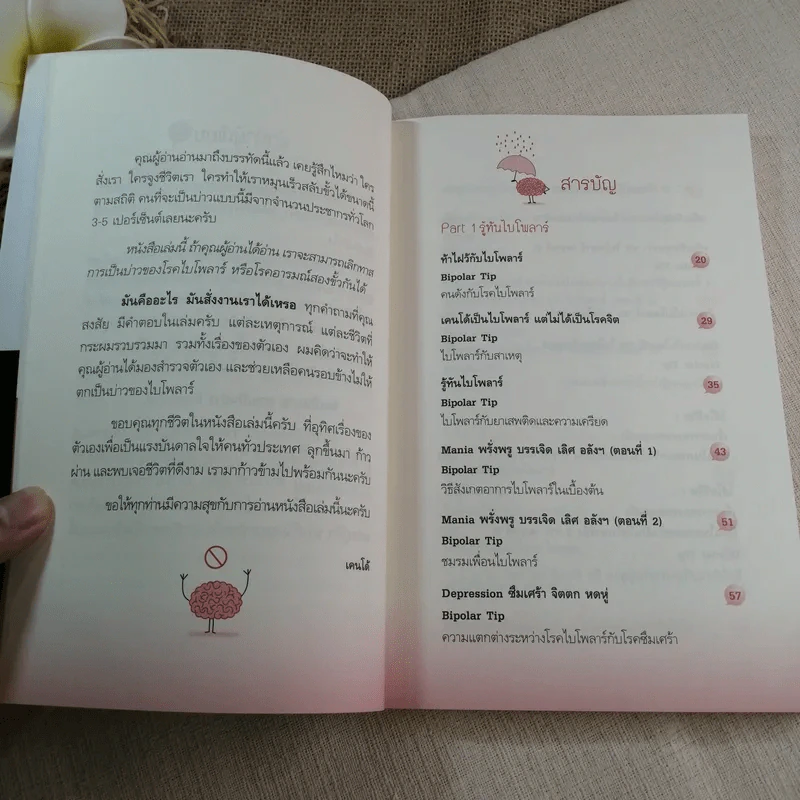 คุณผู้อ่านอ่านมาถึงบรรทัดนี้แล้ว เคยรู้สึกไหมว่า ใคร
สั่งเรา ใครจูงชีวิตเรา ใครทำให้เราหมุนเร็วสลับขั้วได้ขนาดนี้
ตามสถิติ คนที่จะเป็นบ่าวแบบนี้มีจากจำนวนประชากรทั่วโลก
3-5 เปอร์เซ็นต์เลยนะครับ
หนังสือเล่มนี้ ถ้าคุณผู้อ่านได้อ่าน เราจะสามารถเลิกทาส
การเป็นบ่าวของโรคไบโพลาร์ หรือโรคอารมณ์สองขั้วกันได้
มันคืออะไร มันสั่งงานเราได้เหรอ ทุกคำถามที่คุณ
สงสัย มีคำตอบในเล่มครับ แต่ละเหตุการณ์ แต่ละชีวิตที่
กระผมรวบรวมมา รวมทั้งเรื่องของตัวเอง ผมคิดว่าจะทำให้
คุณผู้อ่านได้มองสำรวจตัวเอง และช่วยเหลือคนรอบข้างไม่ให้
ตกเป็นบ่าวของไบโพลาร์
ขอบคุณทุกชีวิตในหนังสือเล่มนี้ครับ ที่อุทิศเรื่องของ
ตัวเองเพื่อเป็นแรงบันดาลใจให้คนทั่วประเทศ ลุกขึ้นมา ก้าว
ผ่าน และพบเจอชีวิตที่ดีงาม เรามาก้าวข้ามไปพร้อมกันนะครับ
ขอให้ทุกท่านมีความสุขกับการอ่านหนังสือเล่มนี้นะครับ
เคนโด้
สารบัญ
Part 1 รู้ทันไบโพลาร์
ทำไฝรักไบโพลาร์ 20
Bipolar Tip
คนดังกับโรคไบโพลาร์
เคนโด้เป็นไบโพลาร์ แต่ไม่ได้เป็นโรคจิต 29
Bipolar Tip
ไบโพลาร์กับสาเหตุ
รู้ทันไบโพลาร์ 35
Bipolar Tip
ไบโพลาร์กับยาเสพติดและความเครียด
Mania พรั่งพรู บรรเจิด เลิศ อลังฯ (ตอนที่ 1) 43
Bipolar Tip
วิธีสังเกตอาการไบโพลาร์ในเบื้องต้น
Mania พรั่งพรู บรรเจิด เลิศ อลังฯ (ตอนที่ 2) 51
Bipolar Tip
ชมรมเพื่อนไบโพลาร์
Depression ซึมเศร้า จิตตก หดหู่ 57
Bipolar Tip
ความแตกต่างระหว่างโรคไบโพลาร์กับโรคซึมเศร้า